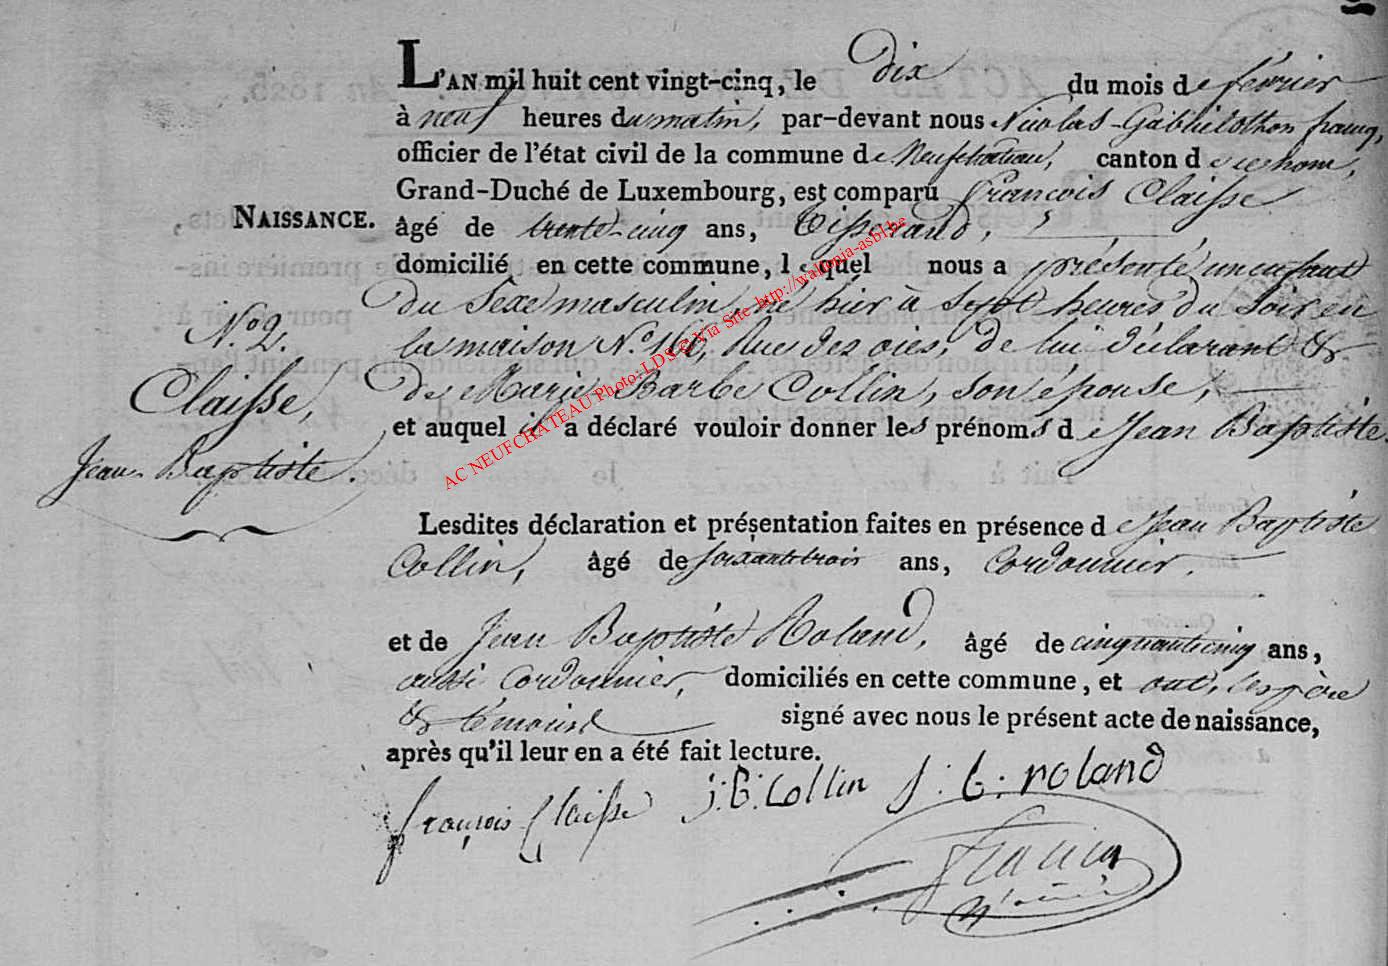 L'AN mil huit cent vingt-cinq, le dix du mois de février
à neuf heures du matin, par-devant nous Nicolas-Gabriel
officier de l'état civil de la commune de Neufchateau, canton de ce nom,
Grand-Duché de Luxembourg, est comparu françois Claisse
NAISSANCE.
âgé de trente-cinq ans, Tisserand,
domicilié en cette commune, lequel nous a présenté un enfant
du Sexe masculin, né hier à Sept heures du Soir en
N.o 2. la maison N.o 166, Rue des oies, de lui déclarant &
Claisse, de Marie Barbe Collin, son épouse,
et auquel il a déclaré vouloir donner les prénoms de Jean Baptiste
Jean Baptiste.
Lesdites déclaration et présentation faites en présence de Jean Baptiste
Collin, âgé de soixante trois ans, Cordonnier,
et de Jean Baptiste Roland, âgé de cinquante cinq ans,
aussi Cordonnier, domiciliés en cette commune, et ont, les père
& témoins signé avec nous le présent acte de naissance,
après qu'il leur en a été fait lecture.
françois Claisse J: B: Collin J: b: roland
AC NEUFCHATEAU Photo: LDS © Via Site http://wallonia-asbl.be